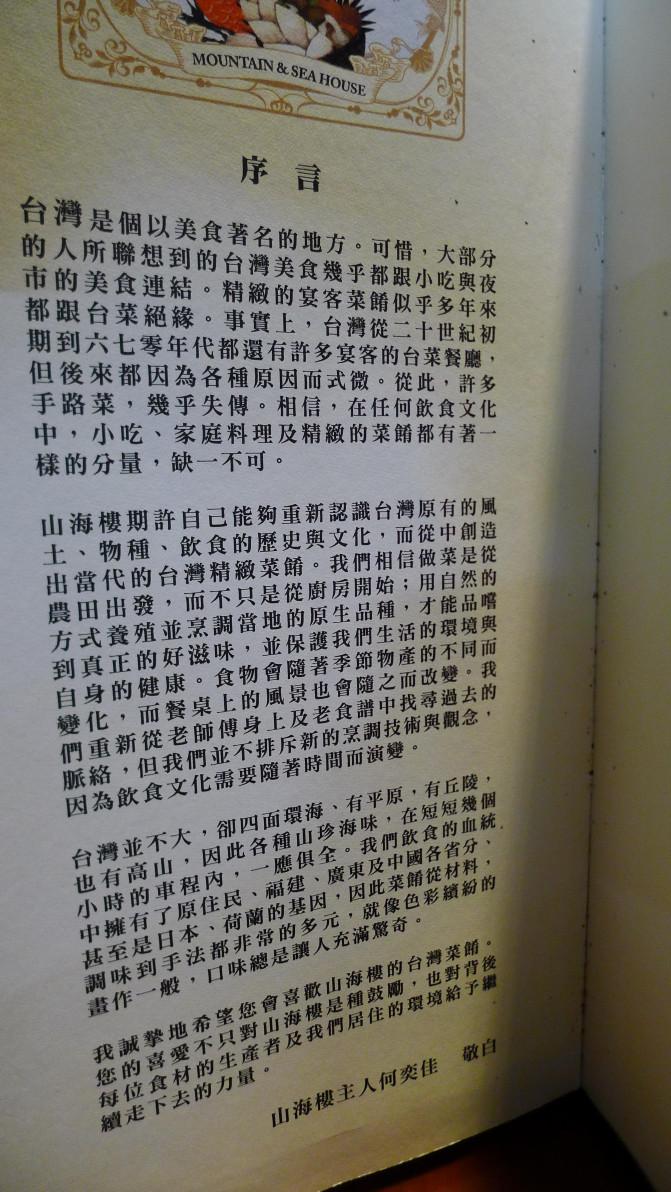 MOUNTAIN & SEA HOUSE
序言
台灣是個以美食著名的地方。可惜，大部分
的人所聯想到的台灣美食幾乎都跟小吃與夜
市的美食連結。精緻的宴客菜餚似乎多年來
都跟台菜絕緣。事實上，台灣從二十世紀初
期到六七零年代都還有許多宴客的台菜餐廳，
但後來都因為各種原因而式微。從此，許多
手路菜，幾乎失傳。相信，在任何飲食文化
中，小吃、家庭料理及精緻的菜餚都有著一
樣的分量，缺一不可。
山海樓期許自己能夠重新認識台灣原有的風
土、物種、飲食的歷史與文化，而從中創造
出當代的台灣精緻菜餚。我們相信做菜是從
農田出發，而不只是從廚房開始；用自然的
方式養殖並烹調當地的原生品種，才能品嚐
到真正的好滋味，並保護我們生活的環境與
自身的健康。食物會隨著季節物產的不同而
變化，而餐桌上的風景也會隨之而改變。我
們重新從老師傅身上及老食譜中找尋過去的
脈絡，但我們並不排斥新的烹調技術與觀念，
因為飲食文化需要隨著時間而演變。
台灣並不大，卻四面環海、有平原，有丘陵，
也有高山，因此各種山珍海味，在短短幾個
小時的車程內，一應俱全。我們飲食的血統
中擁有了原住民、福建、廣東及中國各省分、
甚至是日本、荷蘭的基因，因此菜餚從材料，
調味到手法都非常的多元，就像色彩繽紛的
畫作一般，口味總是讓人充滿驚奇。
我誠摯地希望您會喜歡山海樓的台灣菜餚。
您的喜愛不只對山海樓是種鼓勵，也對背後
每位食材的生產者及我們居住的環境給予繼
續走下去的力量。
山海樓主人何奕佳 敬白